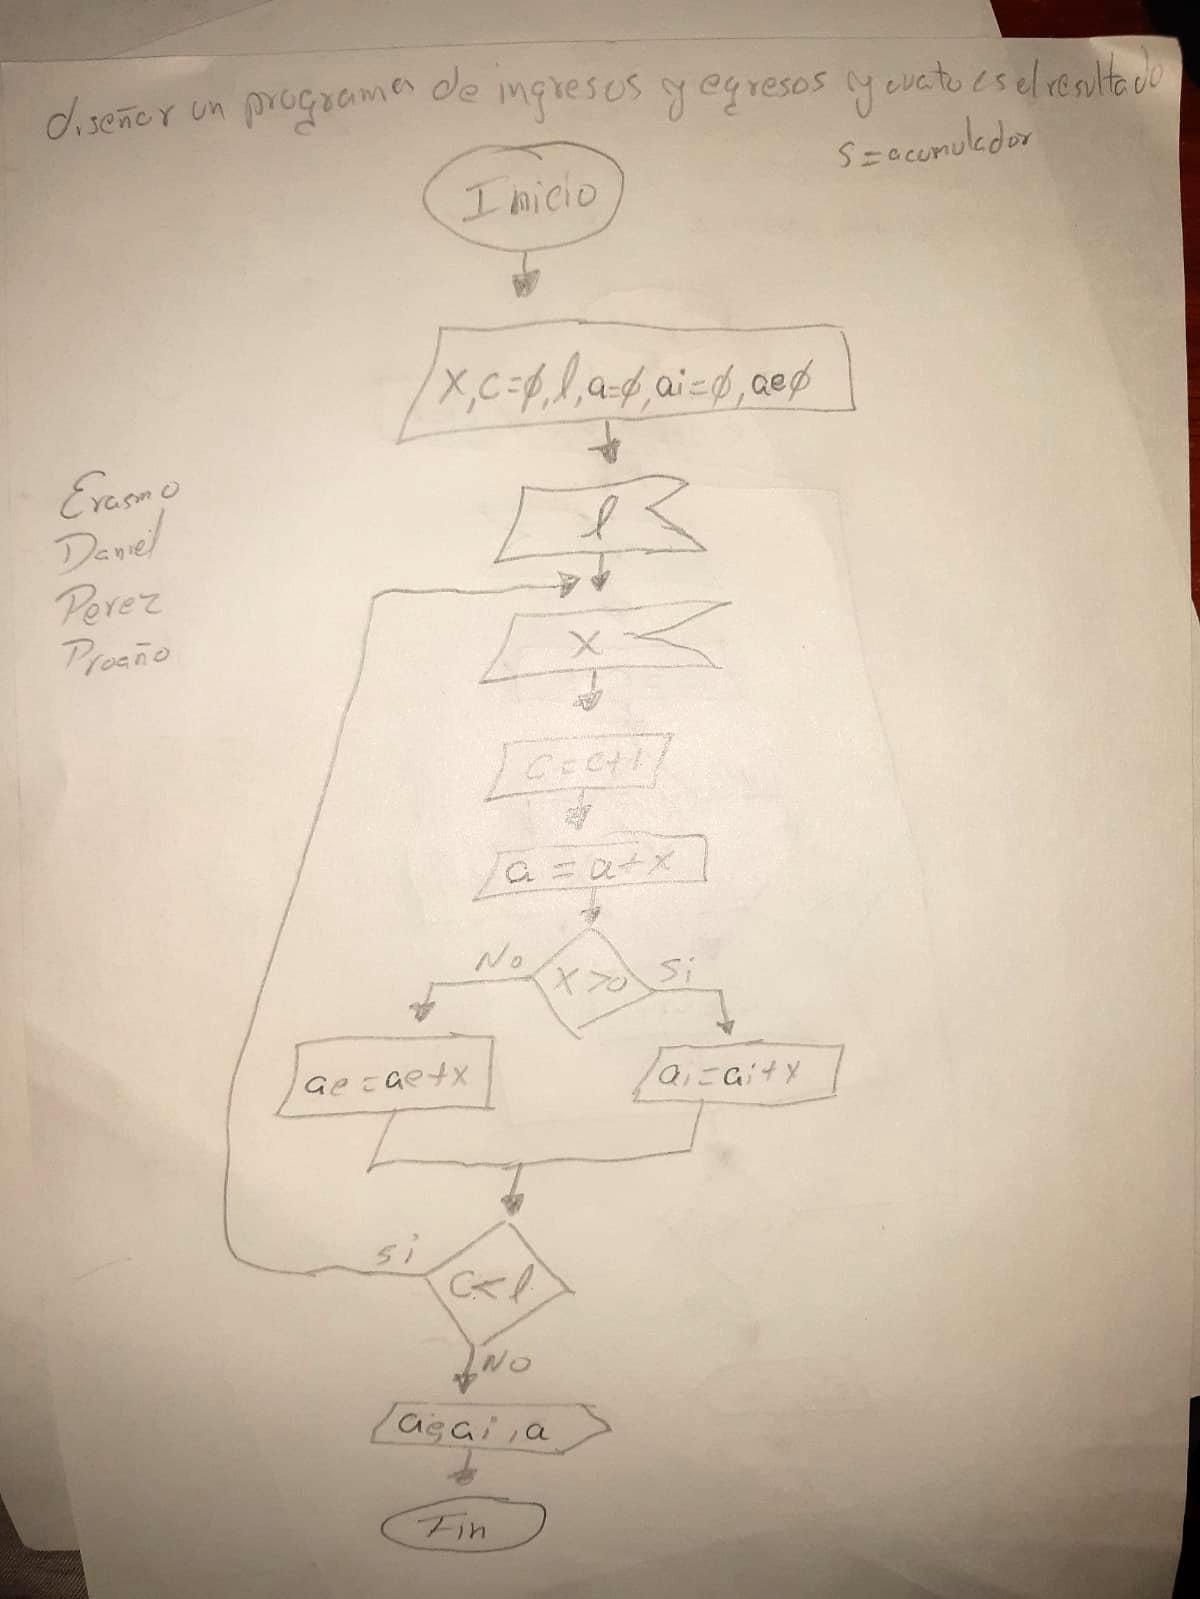 diseñar un programa de ingresos y egresos y cuato es el resultado
s=acumulador
Inicio
X,c=ϕ,l,a=ϕ,ai=ϕ,aeϕ
l
Erasmo
Daniel
Perez
Proaño
X
C=c+1
a=a+x
No
X>0
Si
ae=ae+x
ai=ai+x
si
C<l
NO
ae,ai,a
Fin